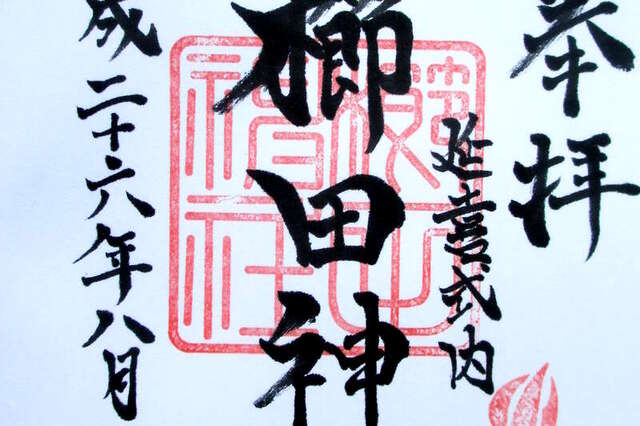 奉拝
延喜式内
櫛田神
成二十六年八月